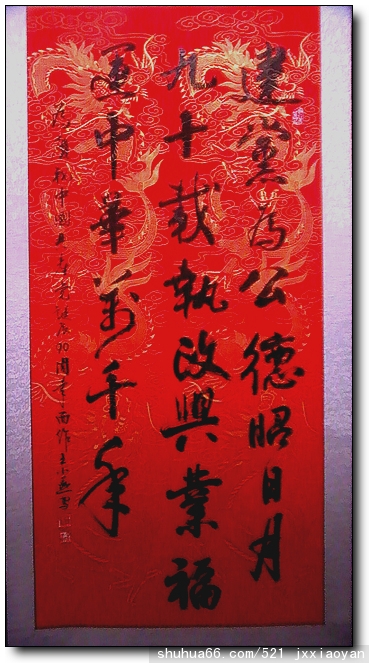 建黨為公德昭日月
九十載執政興業福
運中華萬千年
中國共產黨成90周年而作王小燕書
shuhua66.com/521_jxxiaoyan